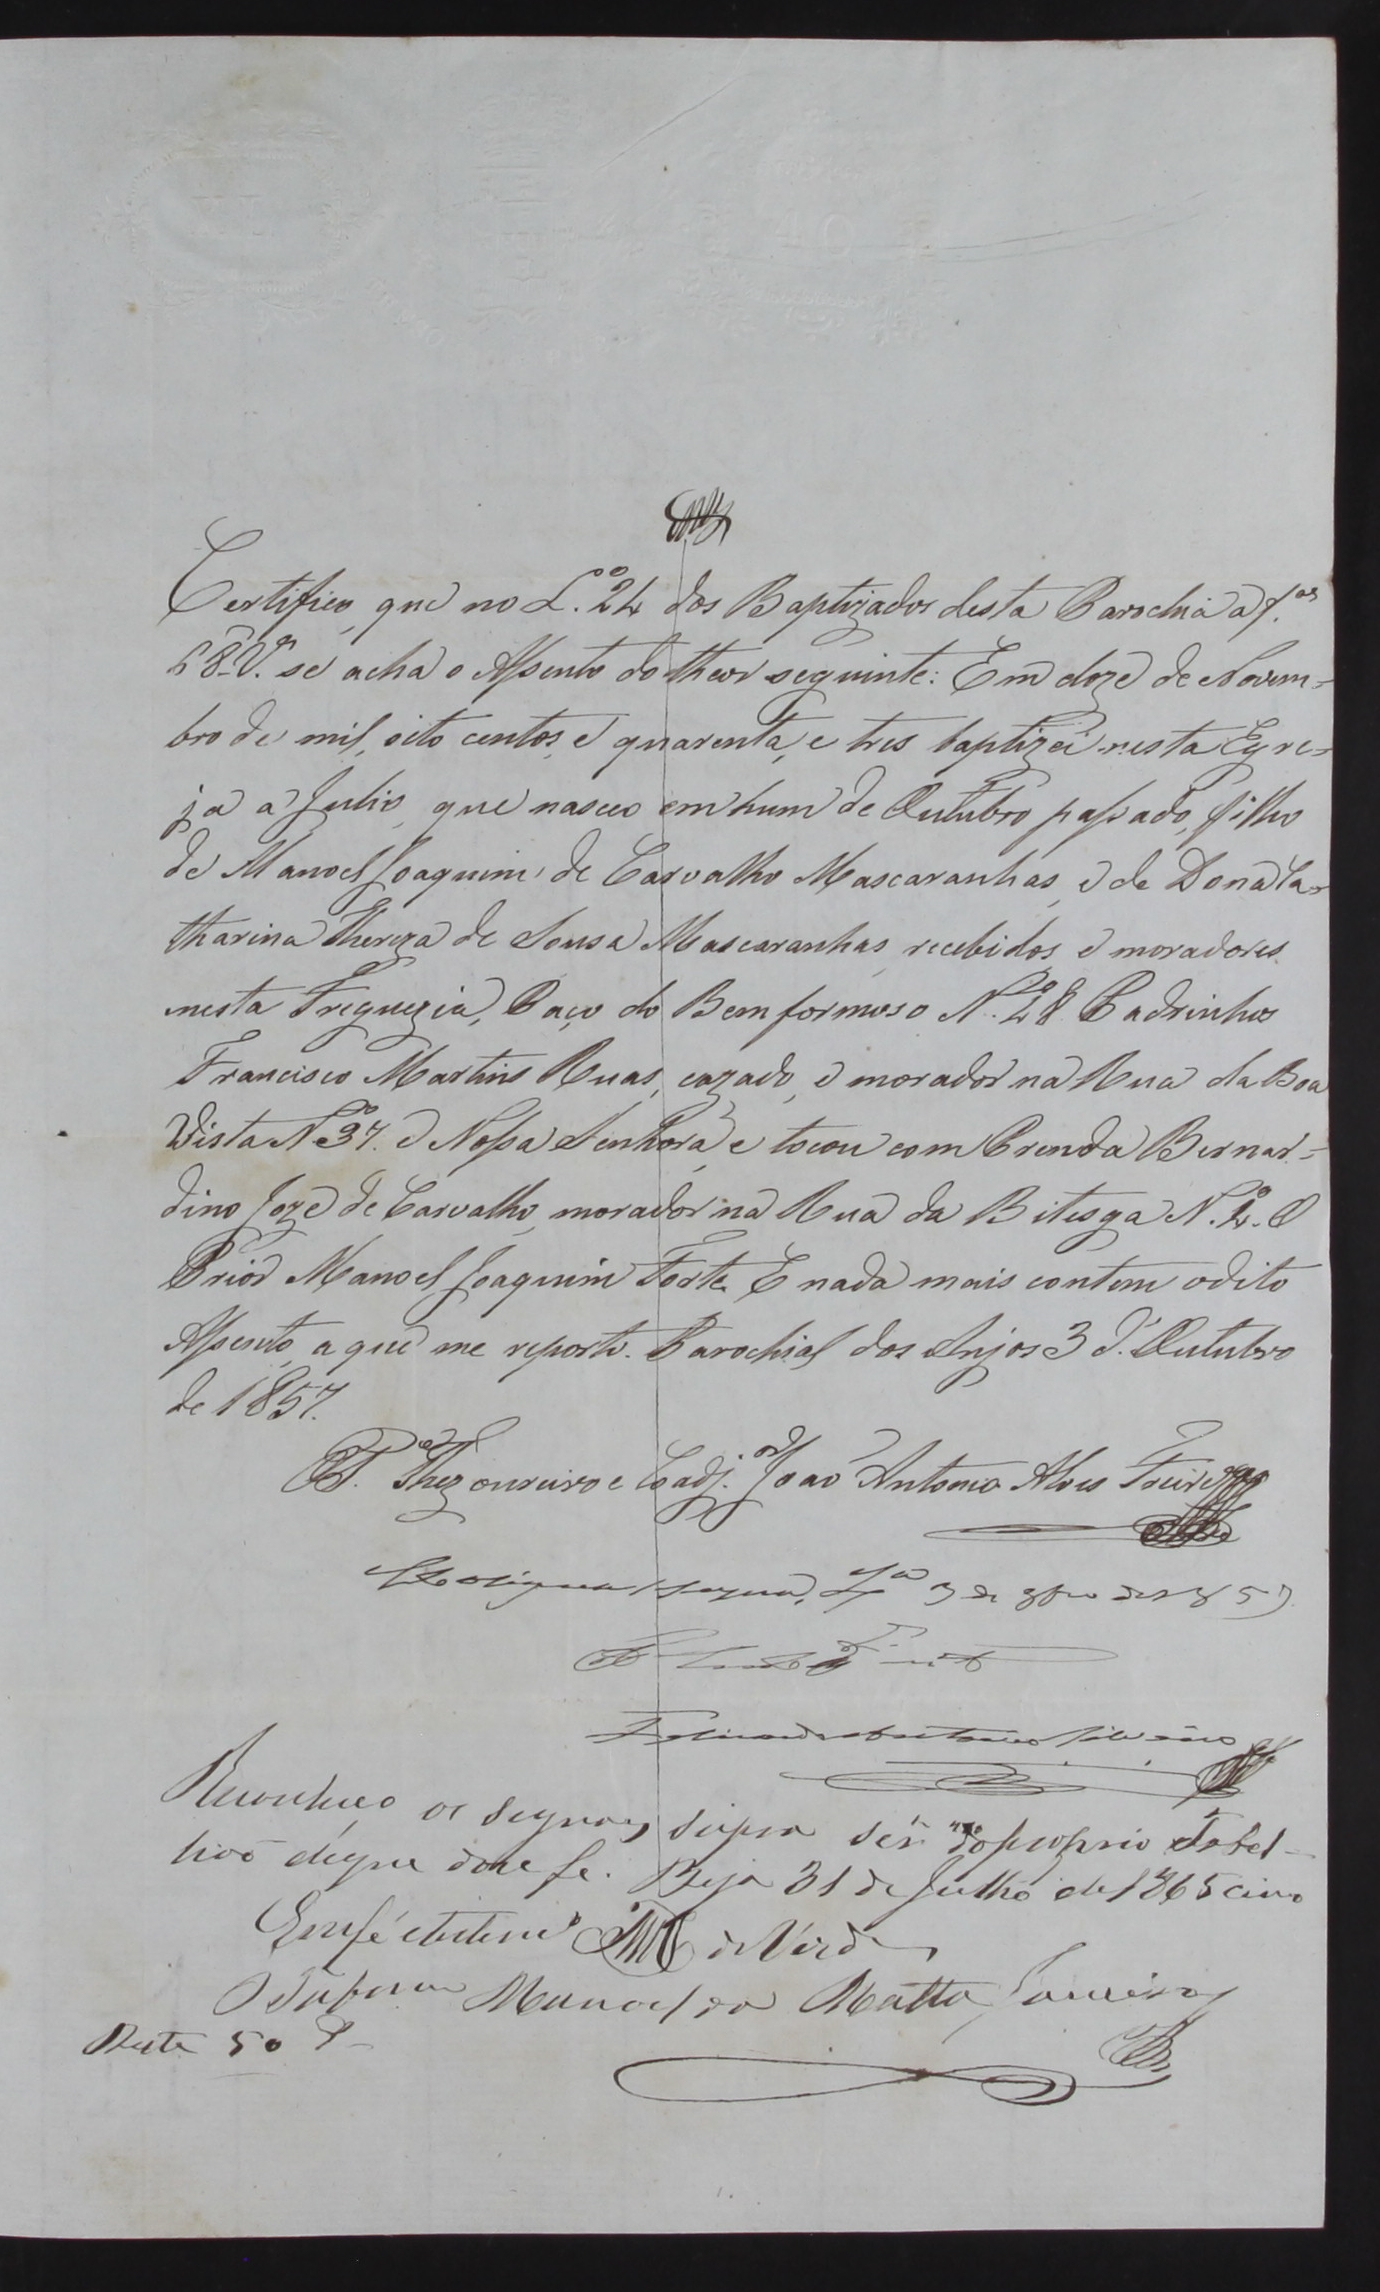 Certifico, que no L.º 24 dos Baptizados desta Parochia a f.as
68 V.º se acha o Assento do theor seguinte: Em doze de Novem=
bro de mil, oito centos, e quarenta, e tres baptizei nesta Egre=
ja a Julio, que nasceo em hum de Outubro passado, filho
de Manoel Joaquim de Carvalho Mascaranhas, e de Dona Ca=
tharina Thereza de Sousa Mascaranhas, recebidos e moradores
nesta Freguezia, Paço do Bemformoso N.º 28. Padrinhos
Francisco Martins Ruas, cazado, e morador na Rua da Boa
Vista N.º 37. e Nossa Senhora, e tocou com Prenda Bernar=
dino Joze de Carvalho, morador na Rua da Bitesga N.º 4. O
Prior Manoel Joaquim Forte. E nada mais contem o dito
Assento, a que me reporto. Parochial dos Anjos 3 d'Outubro
de 1857.
O P. Thezoureiro e Coadj.or João Antonio Alves Freire
3 de 8bro de 1857
Reconheço os signaes supra ser do proprio Tabel-
lião de que dou fe. Beja 31 de Julho de 1865 cinco
Em fé de Verd.e
O Tabam Manoel da Matta
50